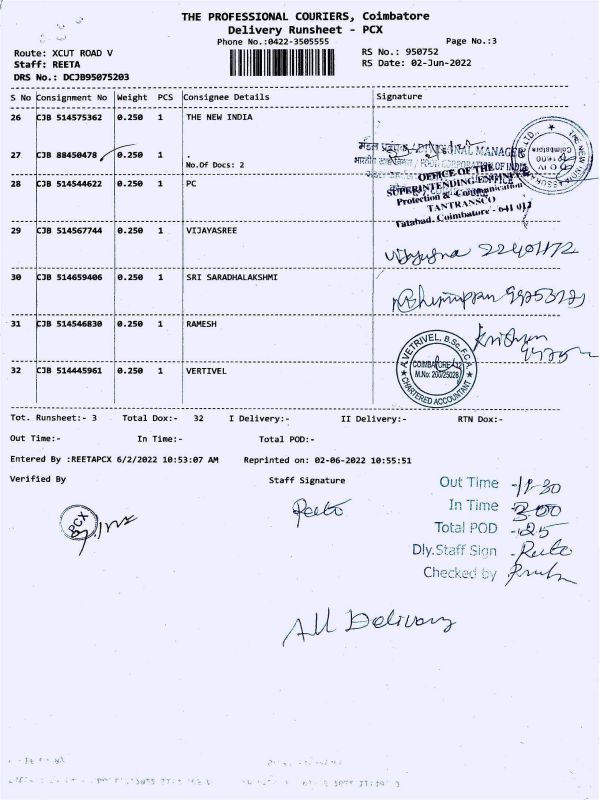 THE PROFESSIONAL COURIERS, Coimbatore
Delivery Runsheet - PCX
Phone No.:0422-3505555
Page No.:3
Route: XCUT ROAD V
RS No.: 950752
Staff: REETA
RS Date: 02-Jun-2022
DRS No.: DCJB95075203
S No Consignment No Weight PCS Consignee Details Signature
26 CJB 514575362 0.250 1 THE NEW INDIA
27 CJB 88450478 0.250 1 .
No.Of Docs: 2
MANAGER
भारतीय / FOOD CORPORATION OF INDIA
28 CJB 514544622 0.250 1 PC
OFFICE OF THE
SUPERINTENDING ENGINEER
Protection & Communication
TANTRANSCO
Tatabad, Coimbatore - 641 012
29 CJB 514567744 0.250 1 VIJAYASREE
30 CJB 514659406 0.250 1 SRI SARADHALAKSHMI
31 CJB 514546830 0.250 1 RAMESH
32 CJB 514445961 0.250 1 VERTIVEL
A.VETRIVEL, B.Sc.,F.C.A.
COIMBATORE-12
M.No: 200/25028
★ CHARTERED ACCOUNTANT ★
Tot. Runsheet:- 3 Total Dox:- 32 I Delivery:- II Delivery:- RTN Dox:-
Out Time:- In Time:- Total POD:-
Entered By :REETAPCX 6/2/2022 10:53:07 AM Reprinted on: 02-06-2022 10:55:51
Verified By Staff Signature
PCX
Reeta
Out Time - 11-30
In Time - 3.00
Total POD - 25
Dly.Staff Sign - Reeta
Checked by
All Delivery